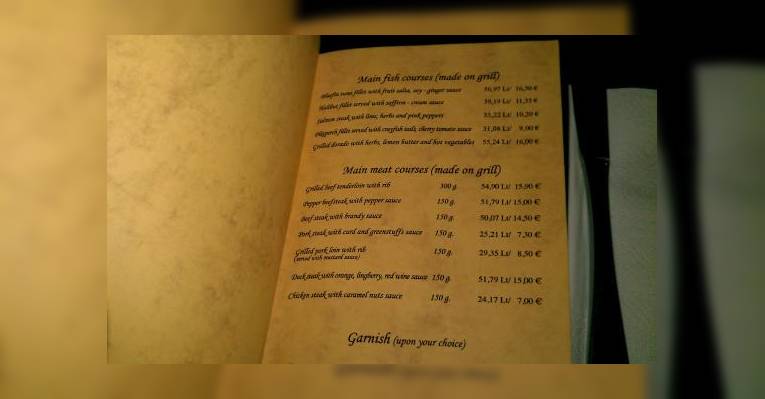 Main fish courses (made on grill)
tuna fillet with fruit salsa, soy - ginger sauce 56,97 Lt/ 16,50 €
Halibut fillet served with saffron - cream sauce 39,19 Lt/ 11,35 €
Salmon steak with lime, herbs and pink peppers 35,22 Lt/ 10,20 €
fillet served with crayfish tails, cherry tomato sauce 31,08 Lt/ 9,00 €
Grilled dorado with herbs, lemon butter and hot vegetables 55,24 Lt/ 16,00 €
Main meat courses (made on grill)
Grilled beef tenderloin with rib 300 g. 54,90 Lt/ 15,90 €
Pepper beefsteak with pepper sauce 150 g. 51,79 Lt/ 15,00 €
Beef steak with brandy sauce 150 g. 50,07 Lt/ 14,50 €
Pork steak with curd and greenstuffs sauce 150 g. 25,21 Lt/ 7,30 €
Grilled pork loin with rib 150 g. 29,35 Lt/ 8,50 €
(served with mustard sauce)
Duck steak with orange, lingberry, red wine sauce 150 g. 51,79 Lt/ 15,00 €
Chicken steak with caramel nuts sauce 150 g. 24,17 Lt/ 7,00 €
Garnish (upon your choice)